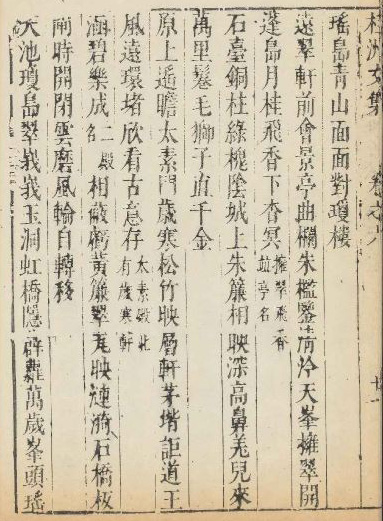 桂洲文集 卷之六
瑤島青山面面對瓊樓
遠翠軒前會景亭曲欄朱檻鑒清泠天峯擁翠開
蓬島月桂飛香下杳冥擁翠飛香並亭名
石臺銅柱綠槐陰城上朱簾相映深高鼻羌兒來
萬里鬈毛獅子直千金
原上遙瞻太素門歲寒松竹映層軒茅堦詎道王
風遠環堵欣看古意存太素殿北有歲寒軒
涵碧樂成二殿名相蔽虧黃簾翠瓦映漣漪石橋板
閘時開閉雲磨風輪自轉移
天池瓊島翠峩峩玉洞虹橋隱薜蘿萬歲峯頭瑤